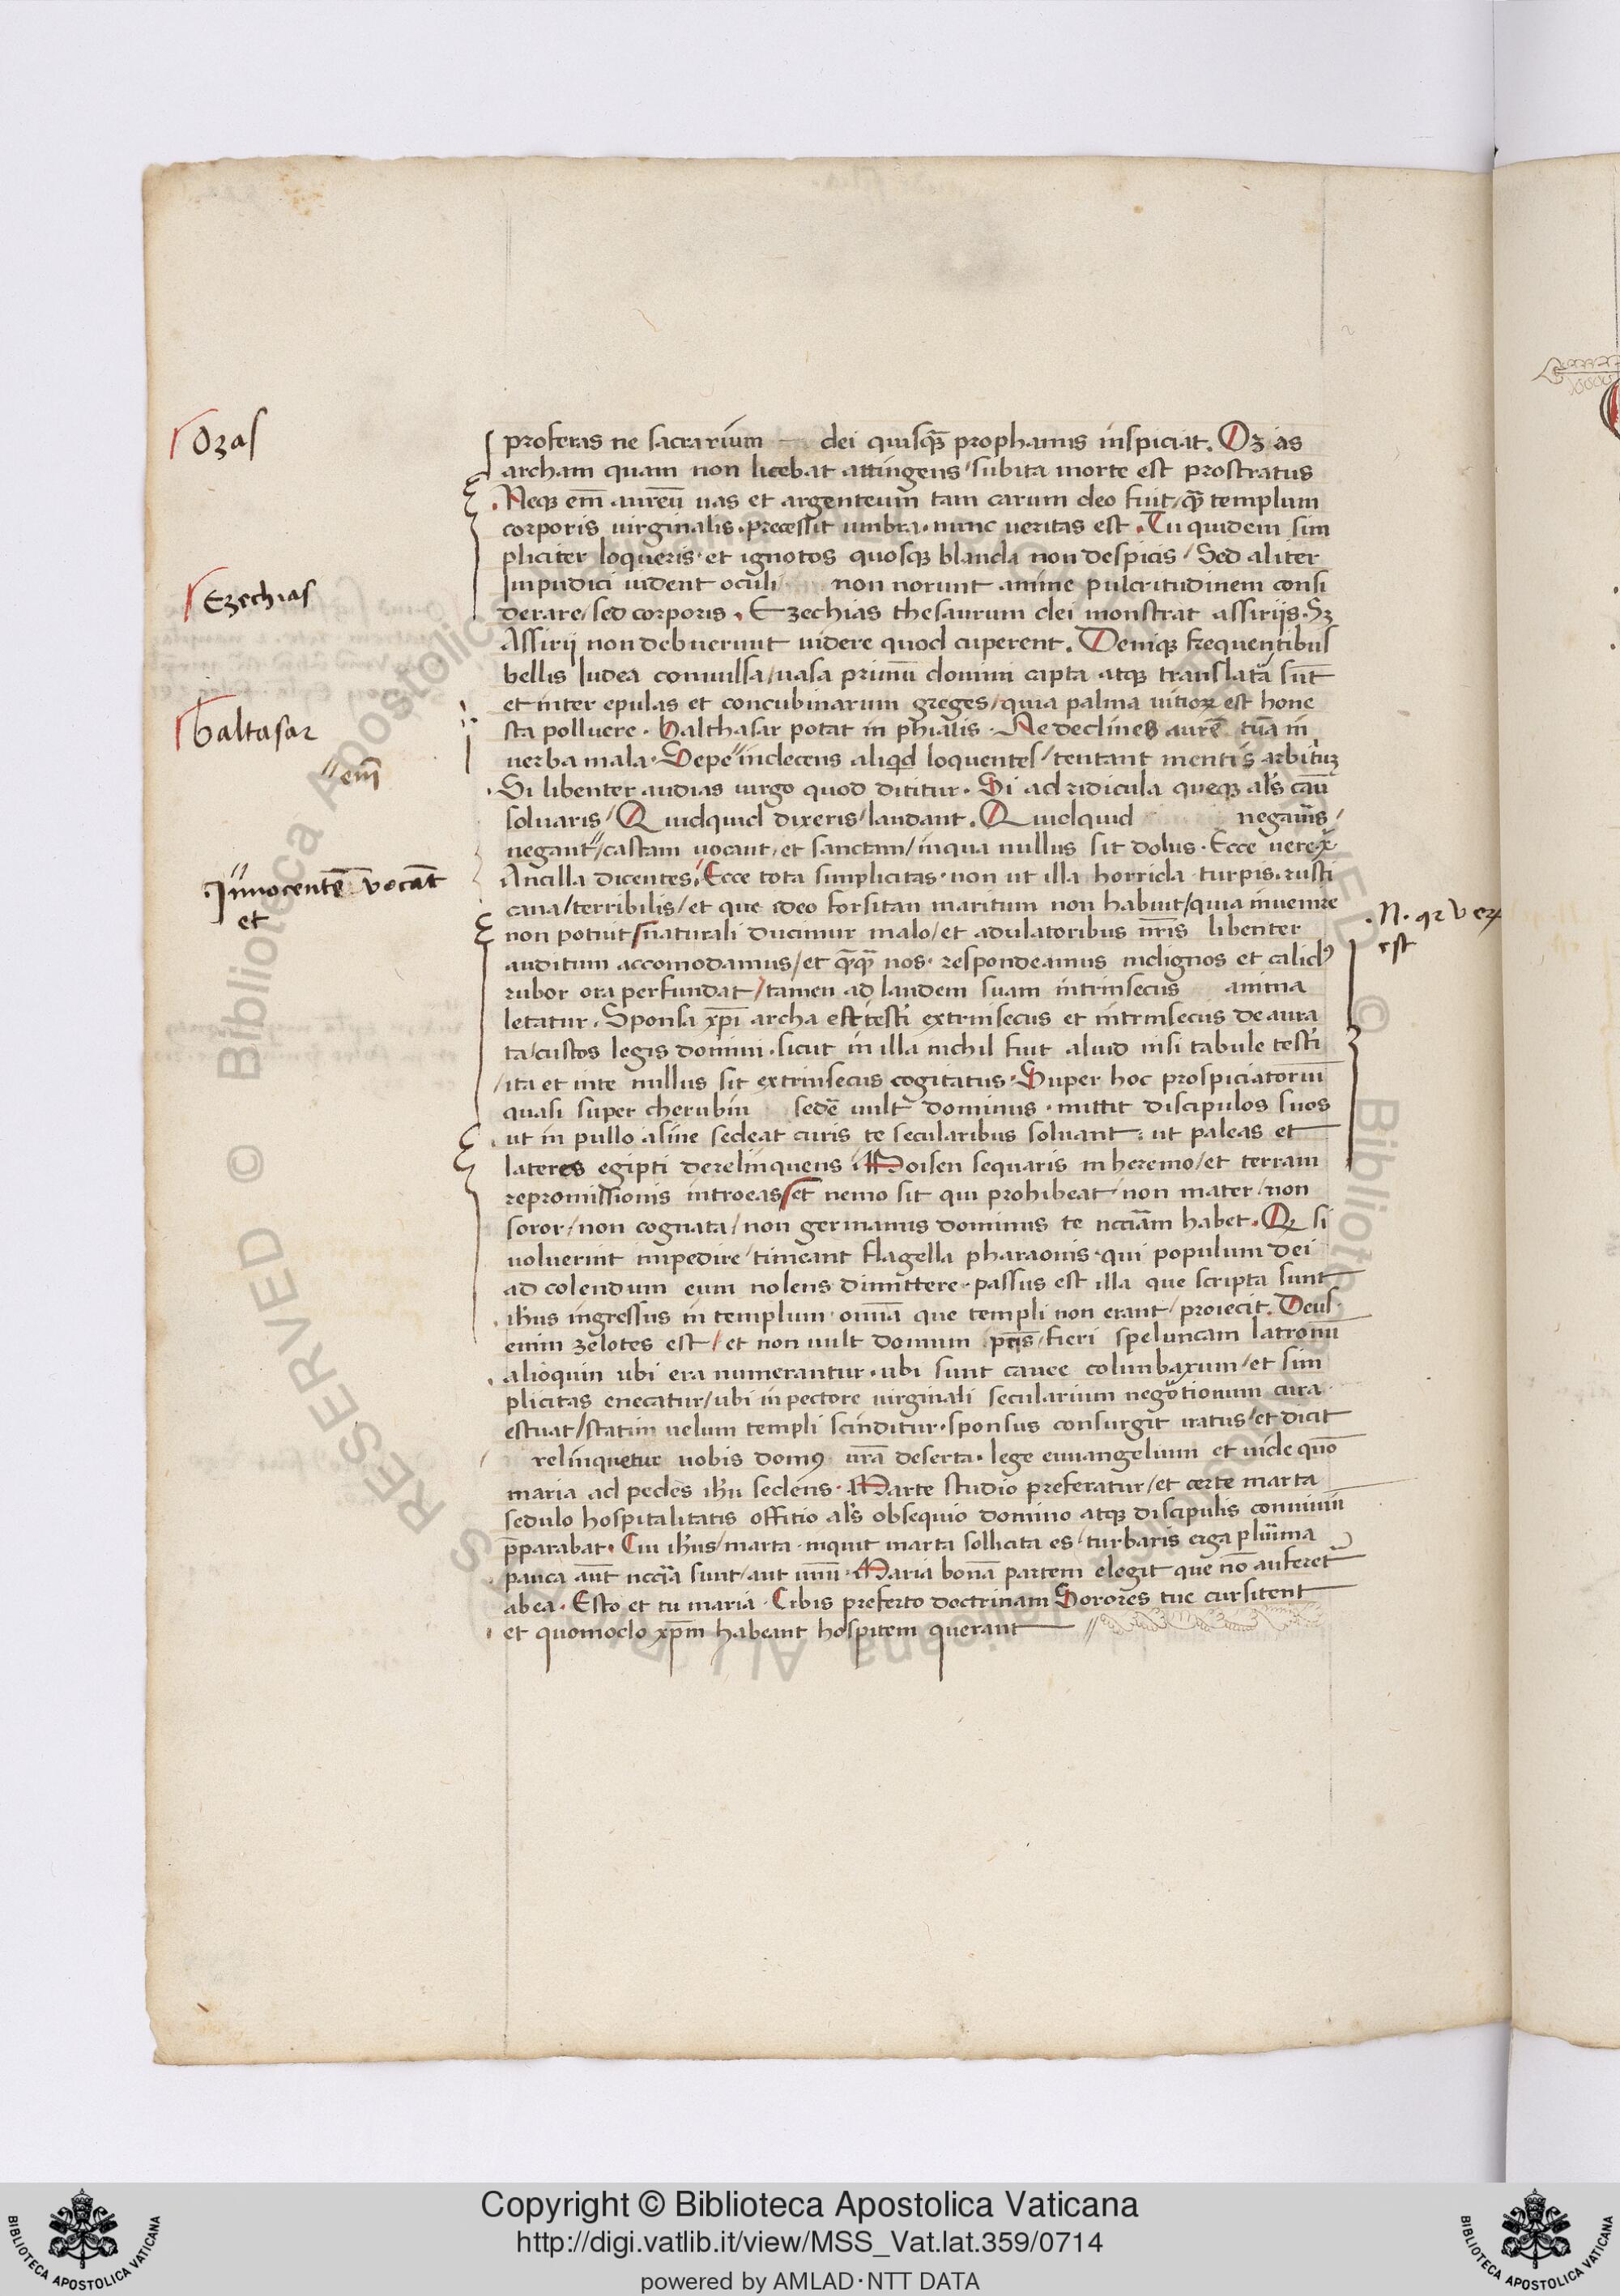 Ozas
proferas ne sacrarium dei quisq̄ prophanus inspiciat. Ozias
archam quam non licebat attingens/subita morte est prostratus
.Neqꝫ em̄ aureū uas et argenteum tam carum deo fuit/q̄ templum
corporis uirginalis.precessit umbra.nunc ueritas est.Tu quidem sim
pliciter loqueris.et ignotos quosqꝫ blanda non despicis/Sed aliter
Impudici uident oculi non norunt anime pulcritudinem consi
Ezechias
derare/sed corporis.Ezechias thesaurum dei monstrat assirijs.Sꝫ
Assirij non debuerunt uidere quod cuperent.Deniqꝫ frequentibus
bellis Iudea conuulsa/uasa primū domini capta atqꝫ translata sūt
et inter epulas et concubinarum greges/quia palma uitioꝝ est hone
baltasar
sta polluere.Balthasar potat in phialis.Ne declines aurē tuā in
em̄
uerba mala.Sepe"indecens aliqid loquentes/tentant mentis arbitriū
.Si libenter audias uirgo quod dicitur.Si ad ridicula queqꝫ als cau
soluaris/Quidquid dixeris/laudant.Quidquid negaueris/
negant"/castam uocant.et sanctam/inqua nullus sit dolus.Ecce uere xp̄i
Innocentē vocāt
et
Ancilla dicentes/Ecce tota simplicitas.non ut illa horrida.turpis.rusti
cana/terribilis/et que ideo forsitan maritum non habuit/quia inuenire
.N. qꝛ verꝝ
est
non potuit/naturali ducimur malo/et adulatoribus nr̄is libenter
auditum accomodamus/et q̄q̄ nos.respondeamus indignos et calidꝰ
rubor ora perfundat/tamen ad laudem suam intrinsecus anima
letatur.Sponsa xp̄i archa est testi extrinsecus et intrinsecus deaura
ta/custos legis domini.sicut in illa nichil fuit aliud nisi tabule testi
/ita et inte nullus sit extrinsecus cogitatus.Super hoc prospiciatoriū
quasi super cherubin sedē uult dominus.mittit discipulos suos
.ut in pullo asine sedeat curis te secularibus soluant.ut paleas et
lateres egipti derelinquens.Moisen sequaris in heremo/et terram
repromissionis introeas/et nemo sit qui prohibeat/non mater/non
soror/non cognata/non germanus dominus te nccīam habet.Qꝫ si
uoluerint impedire/timeant flagella pharaonis.qui populum dei
ad colendum eum nolens dimittere.passus est illa que scripta sunt
.ihūs ingressus in templum.omīa que templi non erant/proiecit.Deus
enim zelotes est/et non uult domum pr̄is/fieri speluncam latronū
.alioquin ubi era numerantur.ubi sunt cauee columbarum/et sim
plicitas enecatur/ubi in pectore uirginali secularium negotionum cura
estuat/statim uelum templi scinditur.sponsus consurgit iratus/et dicit
/relinquetur uobis domꝰ ur̄a deserta.lege euuangelium et uide quō
maria ad pedes ihū sedens.Marte studio preferatur/et certe marta
sedulo hospitalitatis offitio als obsequio domino atqꝫ discipulis conuiuiū
p̄parabat.Cui ihūs/marta.inquit marta sollicita es/turbaris erga plurima
.pauca aūt nccīa sunt/aut unū.Maria bonā partem elegit que nō auferet̄
abea.Esto et tu maria.Cibis preferto doctrinam Sorores tue cursitent
.et quomodo xp̄m habeant hospitem querant
Copyright © Biblioteca Apostolica Vaticana
http://digi.vatlib.it/view/MSS_Vat.lat.359/0714
powered by AMLAD·NTT DATA